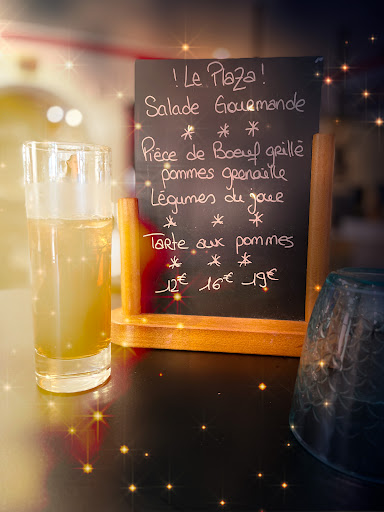 ! Le Plaza !
Salade Gourmande
* * *
Pièce de Boeuf grillé
pommes grenaille
Légumes du jour
* * *
Tarte aux pommes
* * *
12€ 16€ 19€